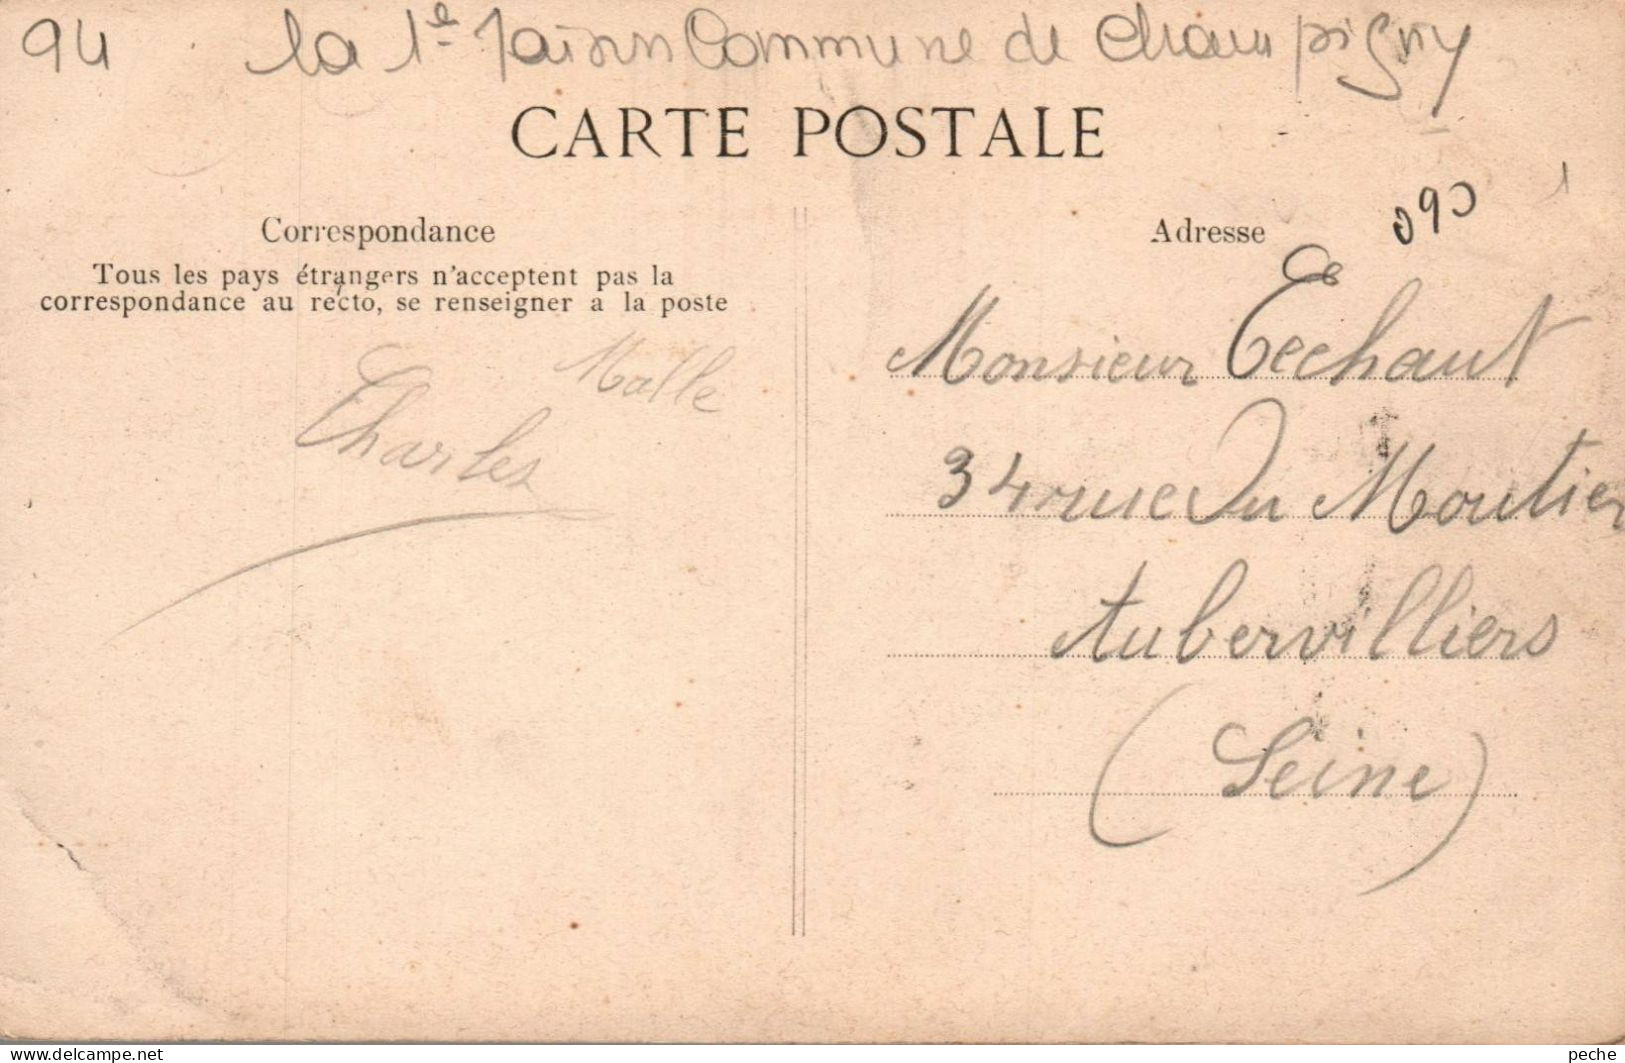 94 la 1e Maison Commune de Champigny
CARTE POSTALE
Correspondance
Tous les pays étrangers n'acceptent pas la
correspondance au récto, se renseigner a la poste
Malle
Charles
Adresse
090
Monsieur Techaut
34 rue Du Moutier
Aubervilliers
(Seine)
www.delcampe.net
peche